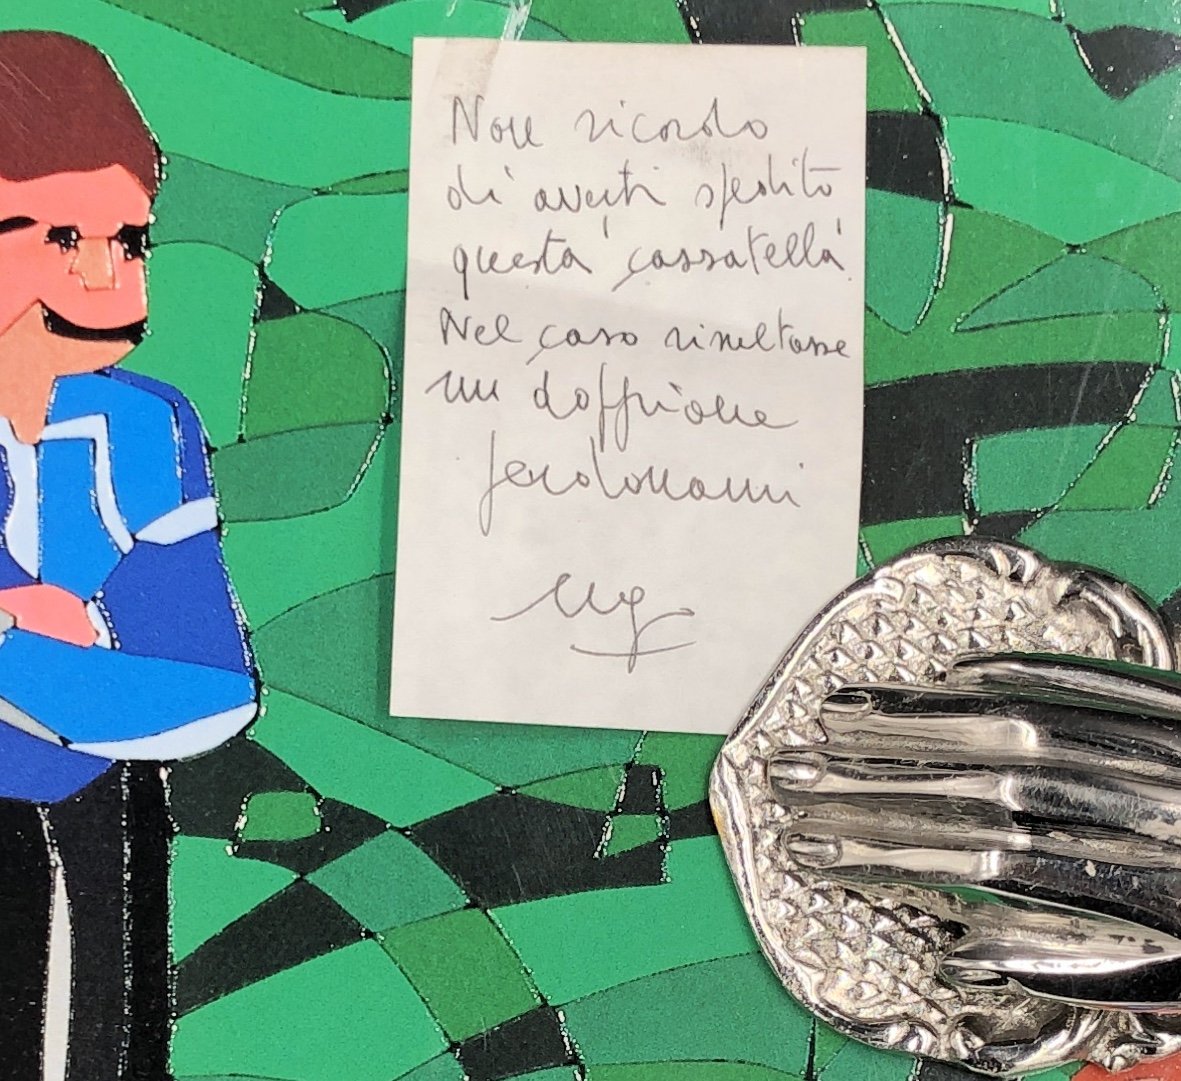 Non ricordo
di averti spedito
questa cassatella.
Nel caso risultasse
un doppione
perdonami